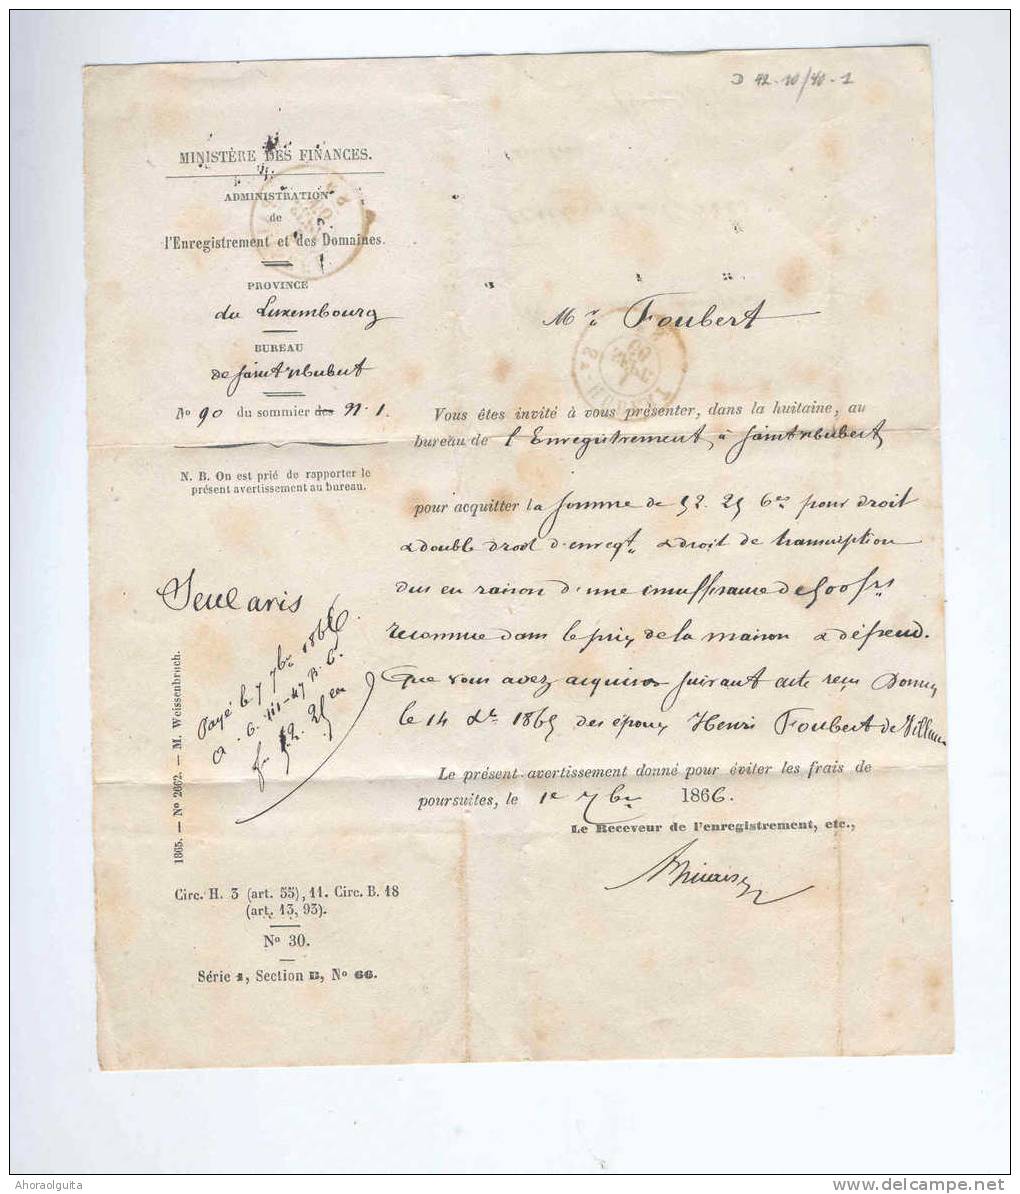 D 42-10/40-1
MINISTÈRE DES FINANCES.
ADMINISTRATION
de
l'Enregistrement et des Domaines.
PROVINCE
du Luxembourg
BUREAU
de Saint Hubert
No 90 du sommier des 31.1.
N. B. On est prié de rapporter le
présent avertissement au bureau.
Mr Foubert
Vous êtes invité à vous présenter, dans la huitaine, au
bureau de l'Enregistrement à Saint Hubert
pour acquitter la somme de 52.25 Ces pour droit
& double droit d'enregt & droit de transcription
dus en raison d'une insuffisance de 500 frs
reconnue dans le prix de la maison & dépend.
Que vous avez acquise suivant acte reçu
le 14 Xbre 1865 des époux Henri Foubert de
Le présent avertissement donné pour éviter les frais de
poursuites, le 1e 7bre 1866.
Le Receveur de l'enregistrement, etc.,
Seul avis
Payé le 7 7bre 1866
52.25
1865. — No 2662. — M. Weissenbruch.
Circ. H. 3 (art. 55), 11. Circ. B. 18
(art. 13, 93).
No 30.
Série 1, Section B, No 66.
Ahoraolguita
www.delcampe.net